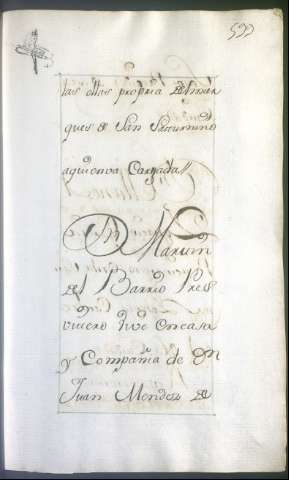 599
las ollas propria del mar
ques de San Saturnino
aquien va Cargada
Dn Martin
del Barrio Pres
vitero vive en casa
y Compañia de Dn
Juan Mendez de